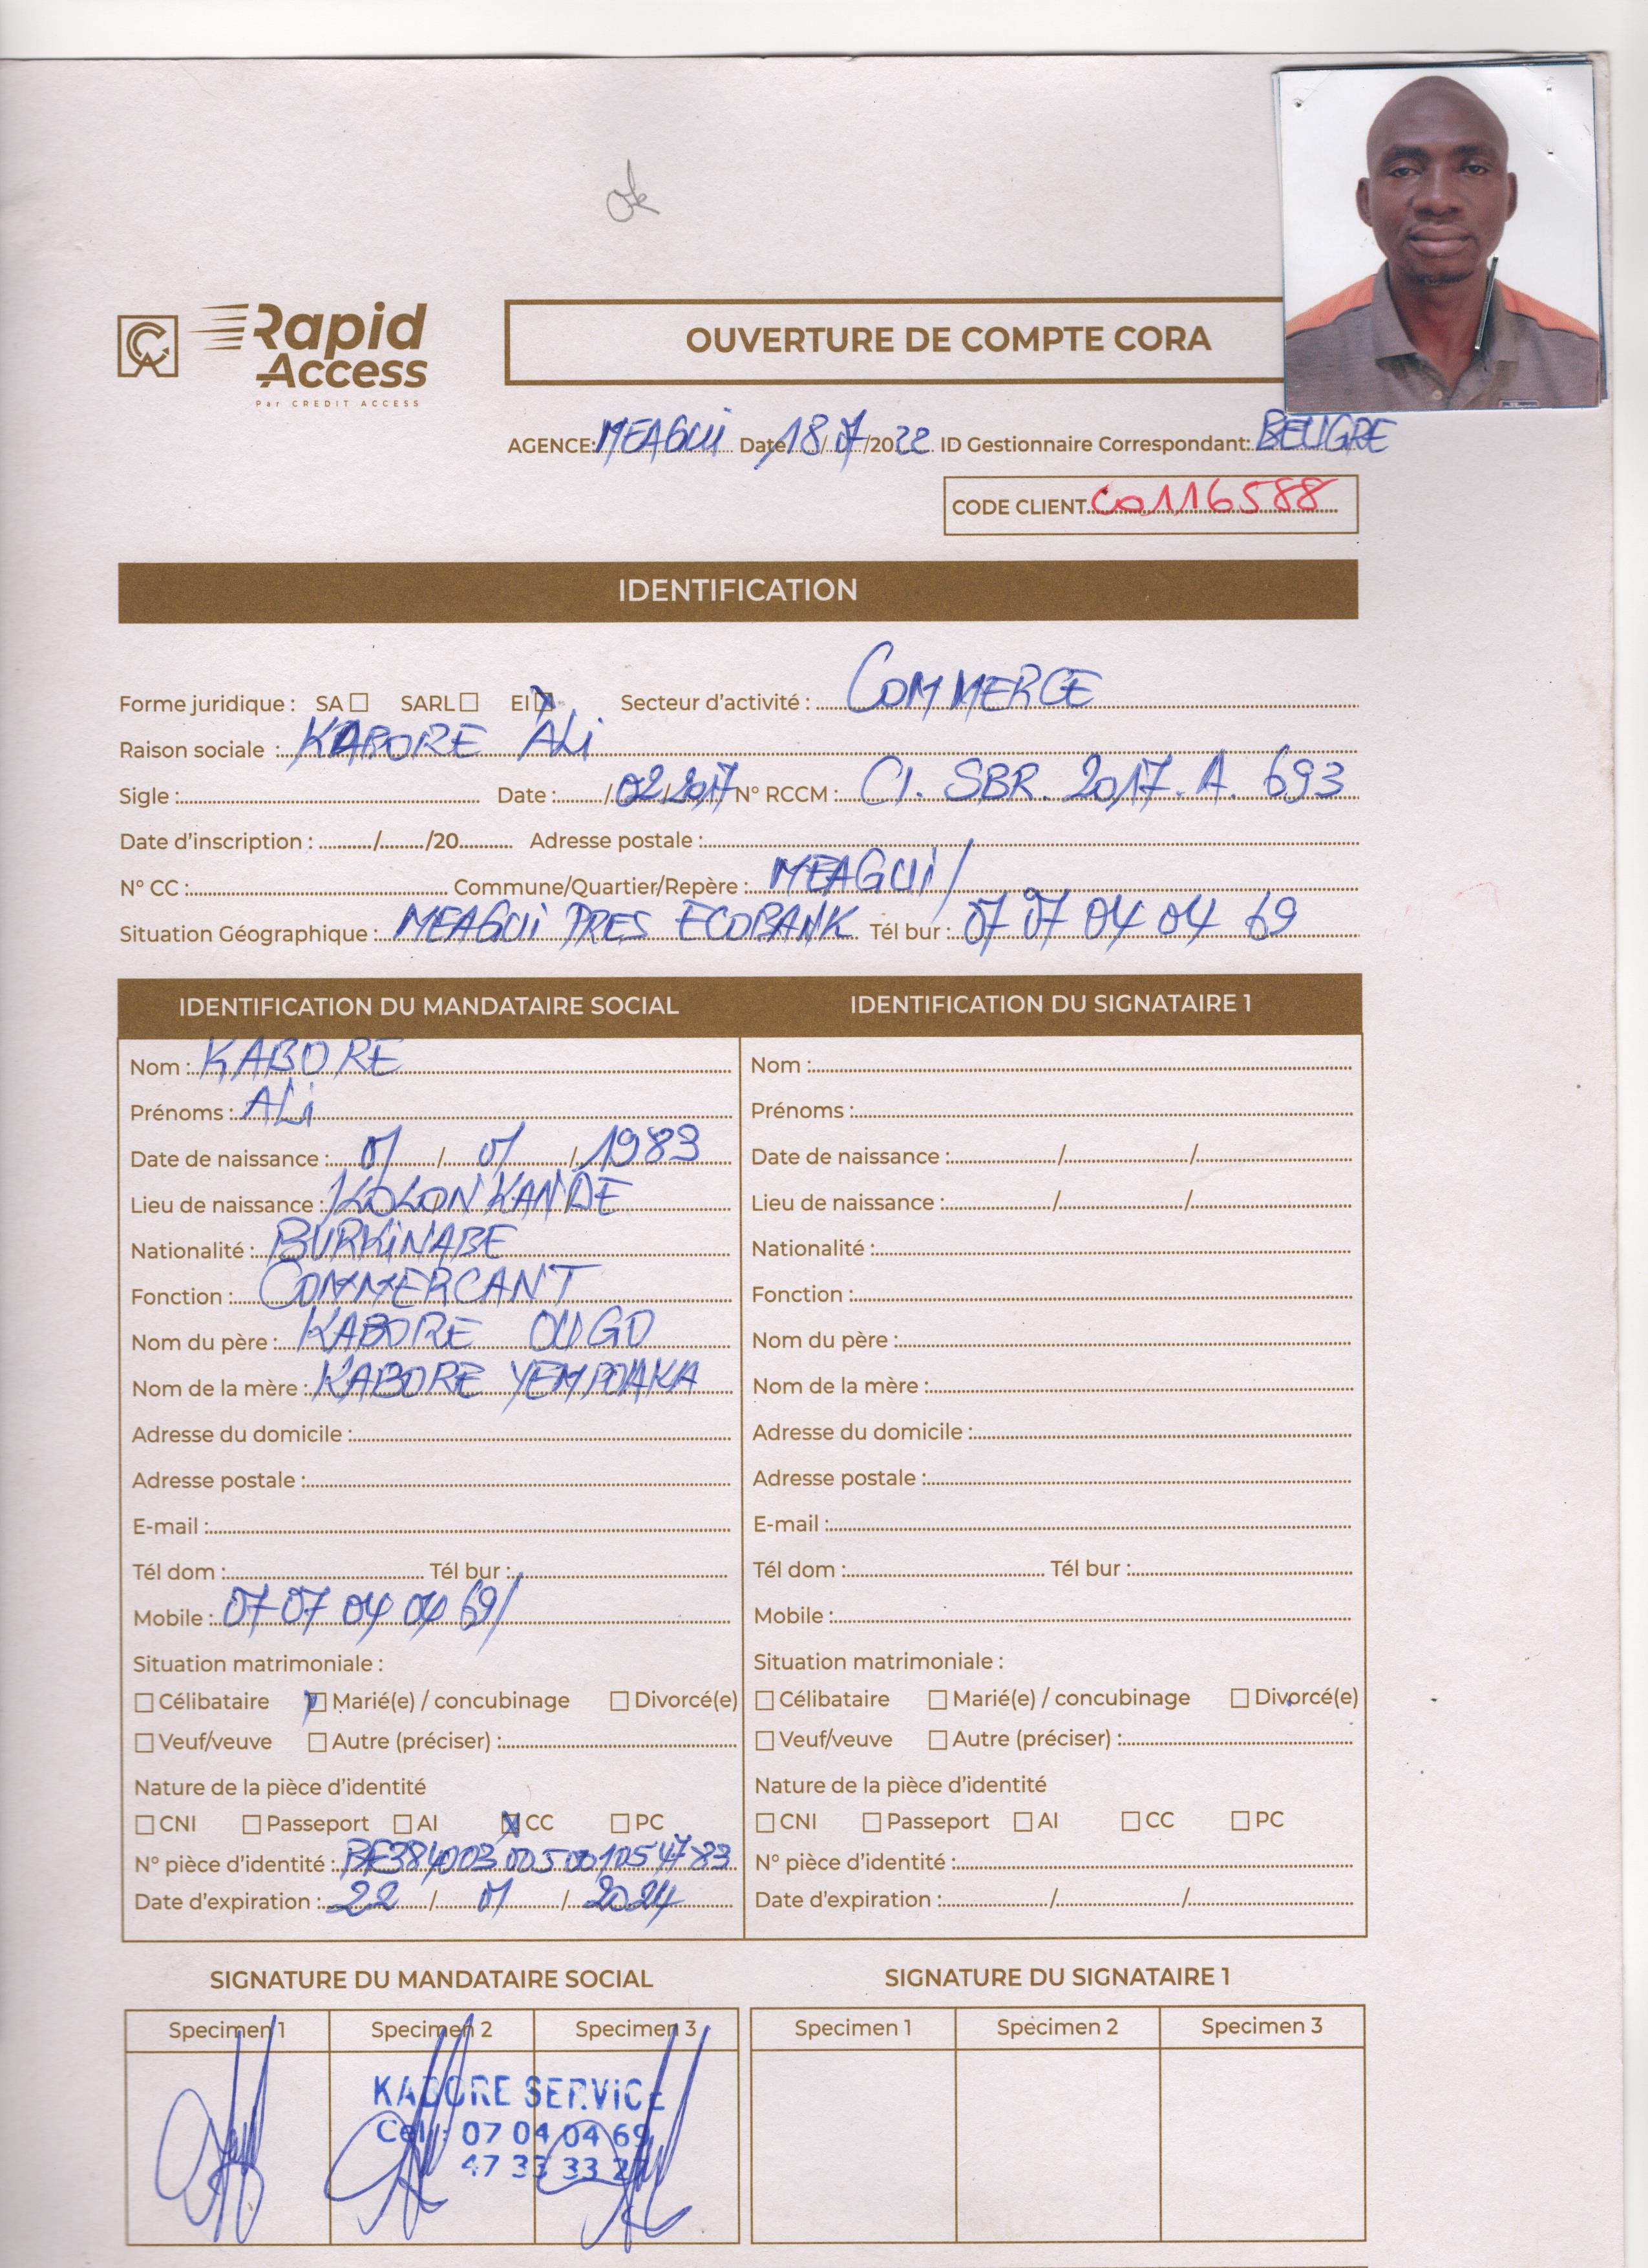 ok
CA Rapid Access
Par CREDIT ACCESS
OUVERTURE DE COMPTE CORA
AGENCE: MEAGUI Date 18/07/2022 ID Gestionnaire Correspondant: BEUGRE
CODE CLIENT C0116588
IDENTIFICATION
Forme juridique : SA SARL EI Secteur d'activité : COMMERCE
Raison sociale : KABORE ALi
Sigle : Date : / 02/2017 N° RCCM : CI. SBR. 2017. A. 693
Date d'inscription : / /20 Adresse postale :
N° CC : Commune/Quartier/Repère : MEAGUI/
Situation Géographique : MEAGUI PRES ECOBANK Tél bur : 07 07 04 04 69
IDENTIFICATION DU MANDATAIRE SOCIAL
Nom : KABORE
Prénoms : ALi
Date de naissance : 01 / 01 / 1983
Lieu de naissance : KOLONKANDE
Nationalité : BURKINABE
Fonction : COMMERCANT
Nom du père : KABORE OUGO
Nom de la mère : KABORE YEMPOAKA
Adresse du domicile :
Adresse postale :
E-mail :
Tél dom : Tél bur :
Mobile : 07 07 04 04 69/
Situation matrimoniale :
Célibataire Marié(e) / concubinage Divorcé(e)
Veuf/veuve Autre (préciser) :
Nature de la pièce d'identité
CNI Passeport AI CC PC
N° pièce d'identité : BF384003005001054783
Date d'expiration : 22 / 01 / 2024
IDENTIFICATION DU SIGNATAIRE 1
Nom :
Prénoms :
Date de naissance : / /
Lieu de naissance : / /
Nationalité :
Fonction :
Nom du père :
Nom de la mère :
Adresse du domicile :
Adresse postale :
E-mail :
Tél dom : Tél bur :
Mobile :
Situation matrimoniale :
Célibataire Marié(e) / concubinage Divorcé(e)
Veuf/veuve Autre (préciser) :
Nature de la pièce d'identité
CNI Passeport AI CC PC
N° pièce d'identité :
Date d'expiration : / /
SIGNATURE DU MANDATAIRE SOCIAL
Specimen 1 Specimen 2 Specimen 3
KABORE SERVICE
Cel : 07 04 04 69
47 33 33 27
SIGNATURE DU SIGNATAIRE 1
Specimen 1 Specimen 2 Specimen 3